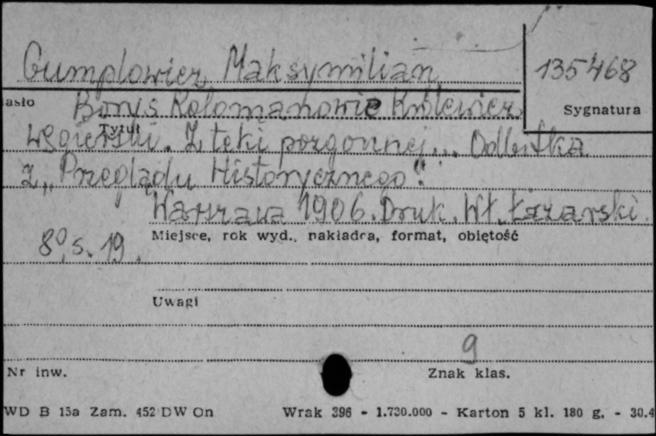 Gumplowicz Maksymilian
135468
asło
Borys Kolomanowic Królewicz
Sygnatura
Tytuł
węgierski. Z teki pozgonnej... Odbitka
z „Przeglądu Historycznego".
Warszawa 1906. Druk. Wł. Łazarski.
8°, s. 19.
Miejsce, rok wyd., nakładca, format, objętość
Uwagi
9
Nr inw.
Znak klas.
WD B 15a Zam. 452 DW On Wrak 396 - 1.730.000 - Karton 5 kl. 180 g. - 30.4